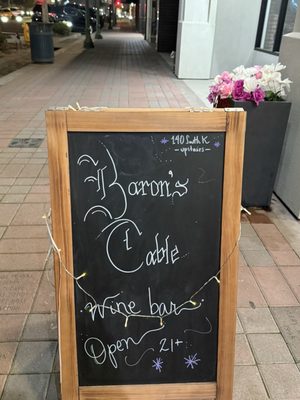 140 South K
- upstairs -
Baron's
Table
Wine bar
Open 21+